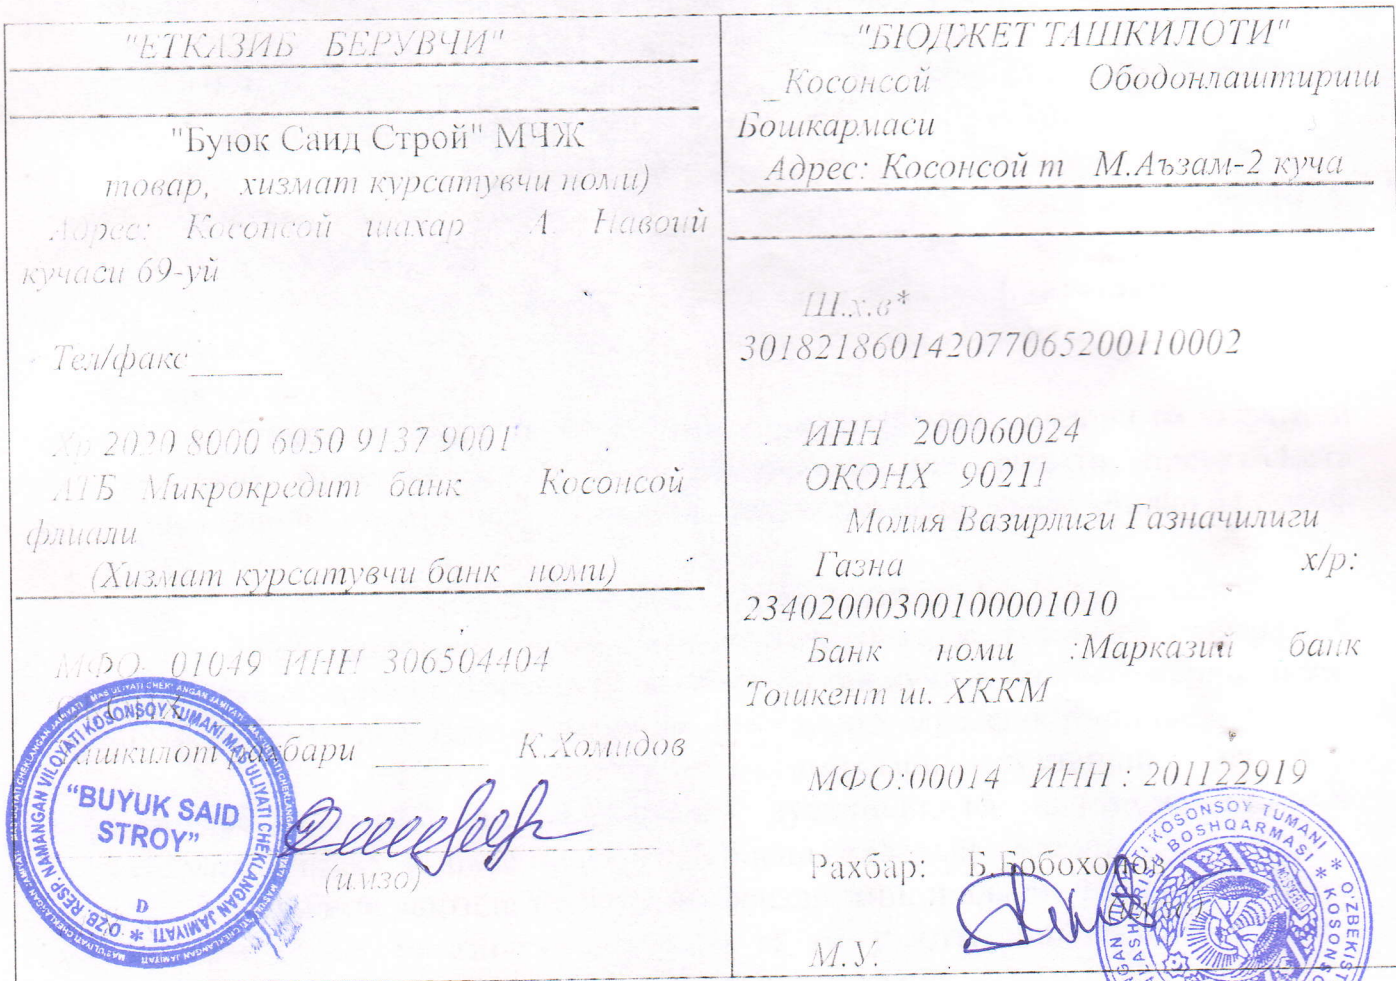 "ЕТКАЗИБ БЕРУВЧИ"
"Буюк Саид Строй" МЧЖ
товар, хизмат курсатувчи номи)
Адрес: Косонсой шахар А. Навоий
кучаси 69-уй
Тел/факс______
Хр 2020 8000 6050 9137 9001
АТБ Микрокредит банк Косонсой
флиали
(Хизмат курсатувчи банк номи)
МФО- 01049 ИНН 306504404
Ташкилот рахбари ______ К.Хомидов
(имзо)
"BUYUK SAID
STROY"
D
O'ZB. RESP. NAMANGAN VILOYATI KOSONSOY TUMANI MAS'ULIYATI CHEKLANGAN JAMIYATI *
"БЮДЖЕТ ТАШКИЛОТИ"
_Косонсой Ободонлаштириш
Бошкармаси
Адрес: Косонсой т М.Аъзам-2 куча
Ш.х.в*
301821860142077065200110002
ИНН 200060024
ОКОНХ 90211
Молия Вазирлиги Газначилиги
Газна х/р:
23402000300100001010
Банк номи :Марказий банк
Тошкент ш. ХККМ
МФО:00014 ИНН : 201122919
Рахбар: Б.Бобохонов
М.У.
KOSONSOY TUMANI *
BOSHQARMASI * KOSONSO